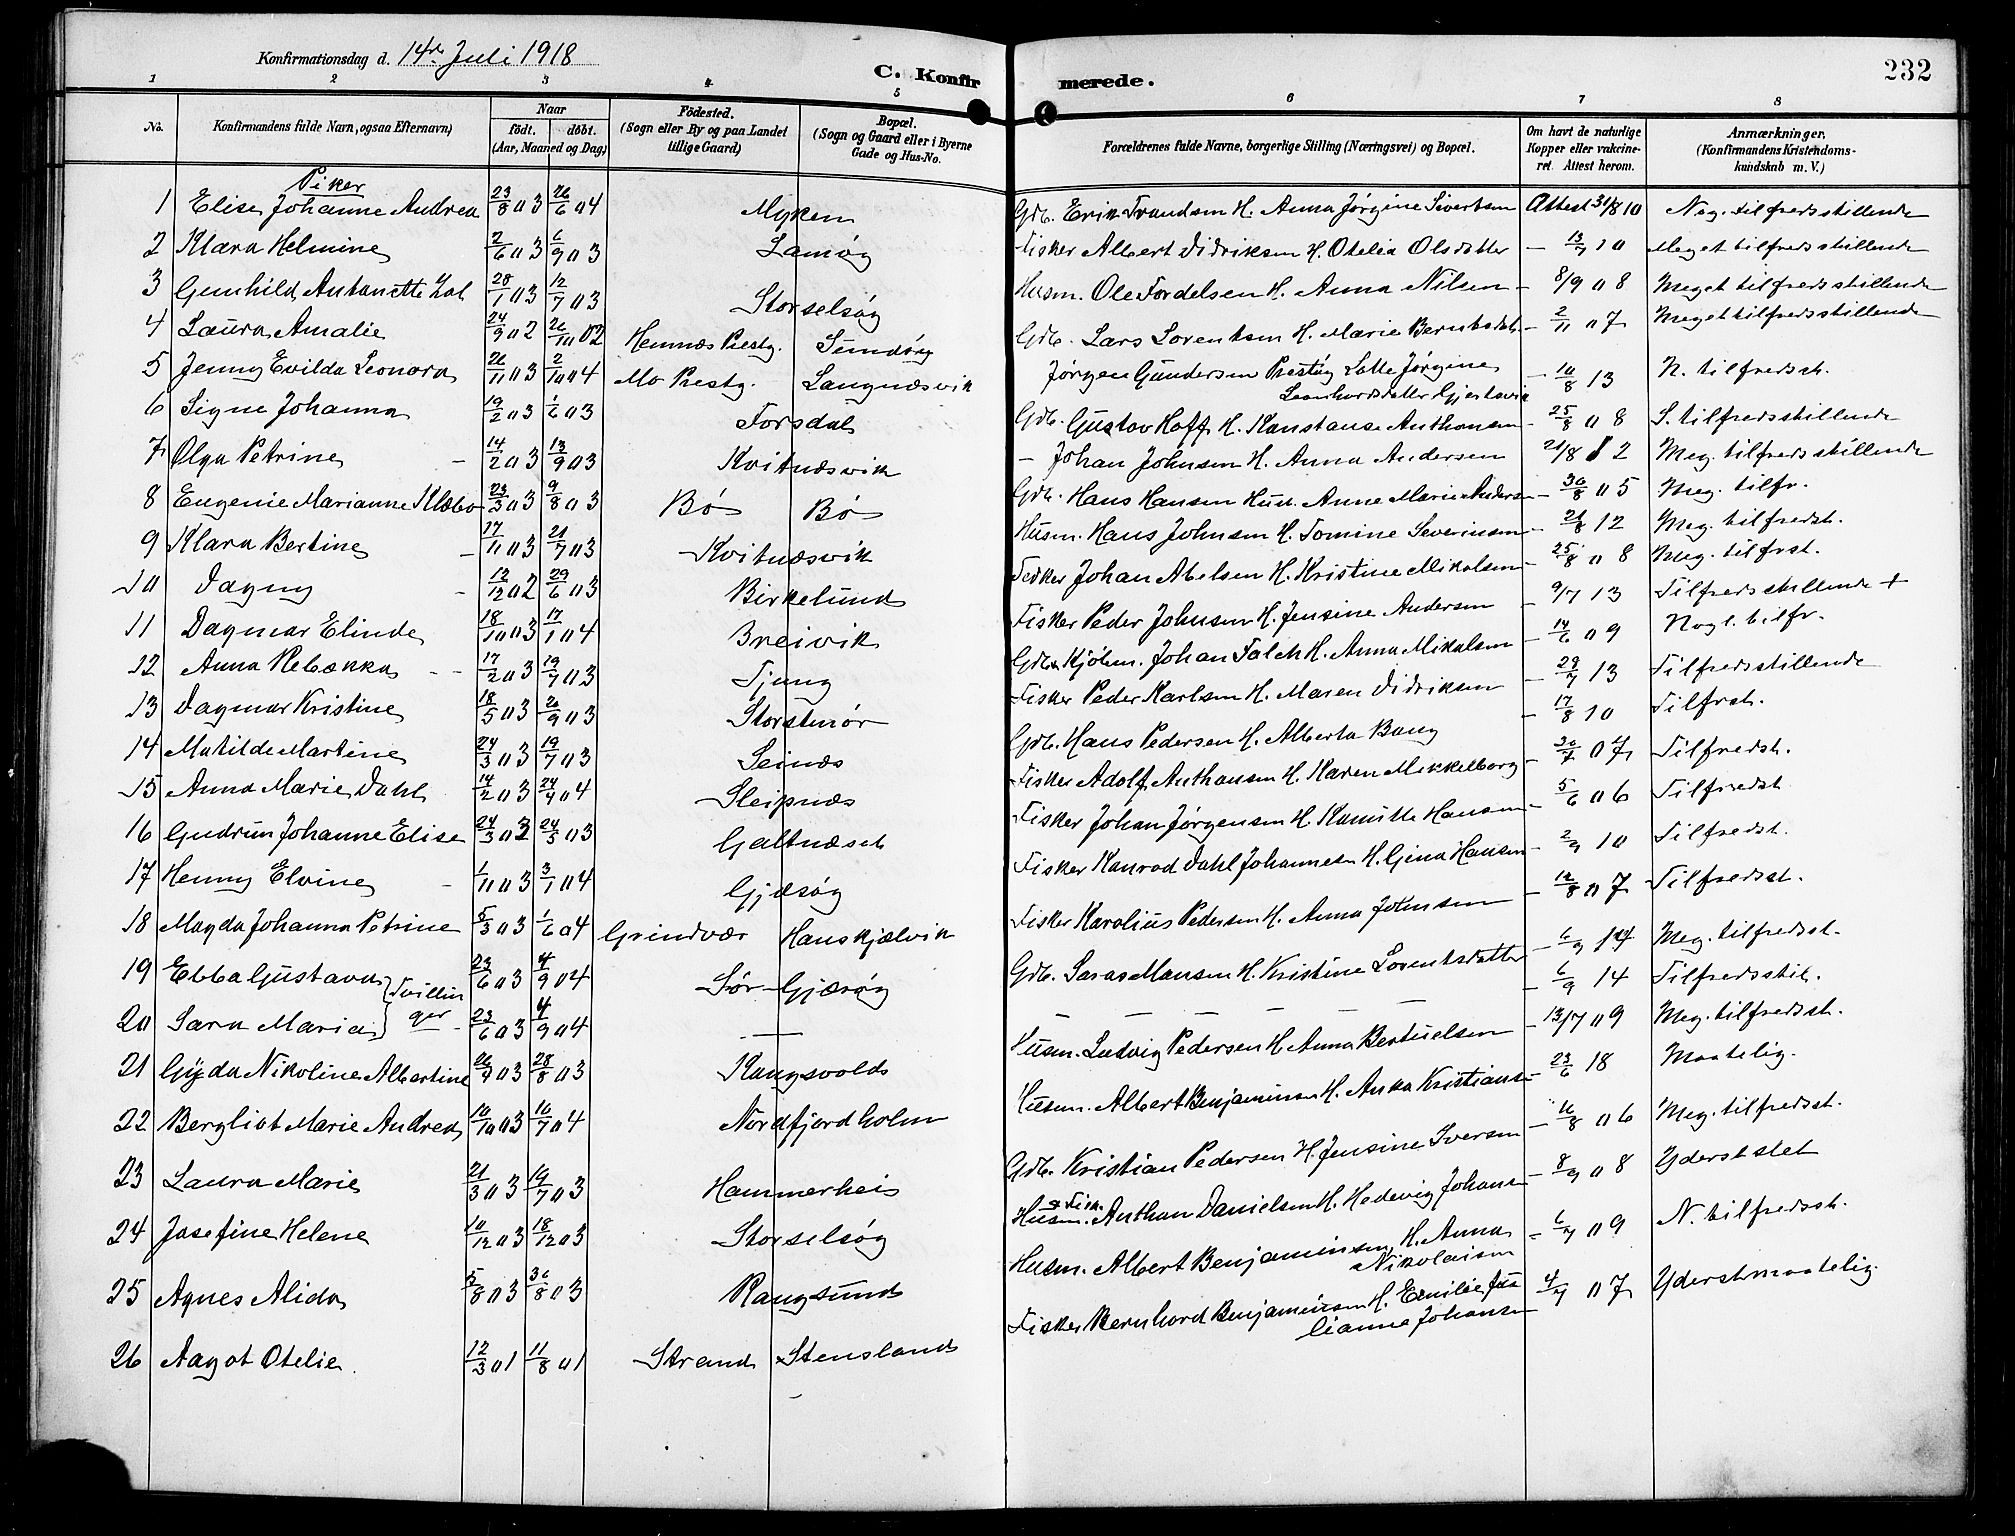 Konfirmationsdag d. 14de Juli 1918
C. Konfirmerede.
232
1 2 3 4 5 6 7 8
No.
Konfirmandens fulde Navn, ogsaa Efternavn)
Naar
födt. döbt.
(Aar, Maaned og Dag)
Födested.
(Sogn eller By og paa Landet
tillige Gaard)
Bopæl.
(Sogn og Gaard eller i Byerne
Gade og Hus-No.
Forældrenes fulde Navne, borgerlige Stilling (Næringsvei) og Bopæl.
Om havt de naturlige
Kopper eller vakcine-
ret. Attest herom.
Anmærkninger,
(Konfirmandens Kristendoms-
kundskab m. V.)
Piker
1 Elise Johanne Andrea 23/8 03 26/6 04 Myken Gdb. Erik Trandsen H. Anna Jørgine Sivertsen Attest 31/8 10 Nog. tilfredsstillende
2 Klara Helmine 2/6 03 6/9 03 Lamøy Fisker Albert Didriksen H. Otelia Olsdatter 13/7 10 Meget tilfredsstillende
3 Gunhild Antonette 28/1 03 12/7 03 Storselsøy Husm. Ole Fordelsen H. Anna Nilsen 8/9 08 Meget tilfredsstillende
4 Laura Amalie 24/9 02 26/10 02 Hemnæs Prestg. Sundøy Gdb. Lars Lorentsen H. Marie Berntsdat. 2/11 07 Meget tilfredsstillende
5 Jenny Evilda Leonora 26/11 03 2/10 04 Mo Prestg. Langnæsvik Jørgen Gundersen Lotte Jørgine
Leonhardsdatter Gjertsvik 10/8 13 N. tilfredsst.
6 Signe Johanna 19/2 03 1/6 03 Forsdal Gdb. Gustav Hoff H. Konstanse Anthonsen 25/8 08 S. tilfredsstillende
7 Olga Petrine 14/2 03 13/9 03 Kvitnæsvik - Johan Johnsen H. Anna Andersen 21/8 12 Meg. tilfredsstillende
8 Eugenie Marianne Klæbo 23/3 03 9/8 03 Bø Bø Gdb. Hans Hansen Hust. Anne Marie Anders. 30/8 05 Meg. tilfr.
9 Klara Bertine 17/11 03 21/7 03 Kvitnæsvik Husm. Hans Johnsen H. Tomine Severinsen 21/8 12 Meg. tilfredst.
10 Dagny 12/12 02 29/6 03 Birkelund Fisker Johan Abelsen H. Kristine Mikalsen 25/8 08 Meg. tilfrst.
11 Dagmar Elinde 18/10 03 17/1 04 Breivik Fisker Peder Johnsen H. Jensine Andersen 9/7 13 Tilfredsstillende +
12 Anna Rebækka 17/2 03 19/7 03 Tjung Gdb. Kjøbm. Johan Falch H. Anna Mikalsen 14/6 09 Nogl. tilfr.
13 Dagmar Kristine 18/5 03 20/9 03 Storstmør Fisker Peder Karlsen H. Maren Didriksen 29/7 13 Tilfredsstillende
14 Matilde Martine 24/3 03 19/7 03 Seinæs Gdb. Hans Pedersen H. Alberta Bang 17/8 10 Tilfrst.
15 Anna Marie Dahl 14/2 03 24/4 04 Sleipnæs Fisker Adolf Anthonsen H. Karen Mikkelborg 30/7 07 Tilfredst.
16 Gudrun Johanne Elise 24/3 02 24/5 03 Galtnæset Fisker Johan Jørgensen H. Kamilla Hansen 5/6 06 Tilfredst.
17 Henny Elvine 1/11 03 3/1 04 Gjæsøy Fisker Konrad Dahl Johannesen H. Gina Hansen 2/9 10 Tilfredst.
18 Magda Johanna Petrine 5/3 03 1/6 04 Grindvær Hanskjælvik Fisker Karolius Pedersen H. Anna Johnsen 12/8 07 Tilfredsst.
19 Ebba Gustava 23/6 03 4/9 04 Sør-Gjærøy Gdb. Saras Monsen H. Kristine Lorentsdatter 6/9 14 Meg. tilfredsst.
Tvillinger
20 Sara Maria 23/6 03 4/9 04 — — — — 6/9 14 Tilfredsstil.
21 Gyda Nikoline Albertine 26/4 03 28/8 03 Rangsvolds Husm. Ludvig Pedersen H. Anna Bertuelsen 13/7 09 Meg. tilfredsst.
22 Bergliot Marie Andrea 10/10 03 10/7 04 Nordfjordholm Husm. Albert Benjaminsen H. Anna Kristians. 23/6 18 Maatelig.
23 Laura Marie 21/3 03 19/7 03 Hammerheis Gdb. Kristian Pedersen H. Jensine Iversen 16/8 06 Meg. tilfredsst.
24 Josefine Helene 10/12 03 18/12 03 Storselsøy Husm. & Fisk. Anthon Danielsen H. Hedevig Johans. 8/9 08 Yderst slet
25 Agnes Alida 5/8 03 30/8 03 Rangsund Husm. Albert Benjaminsen H. Anna
Nikolaisen 6/7 09 N. tilfredsst.
26 Aagot Otelie 12/3 01 11/8 01 Strand Stensland Fisker Bernhard Benjaminsen H. Emilie Ju-
lianne Johansen 4/7 07 Yderst maatelig